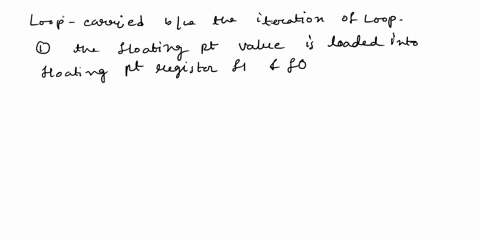 Loop-carried b/w the iteration of Loop.
① the floating pt value is loaded into
floating pt register f1 & f0